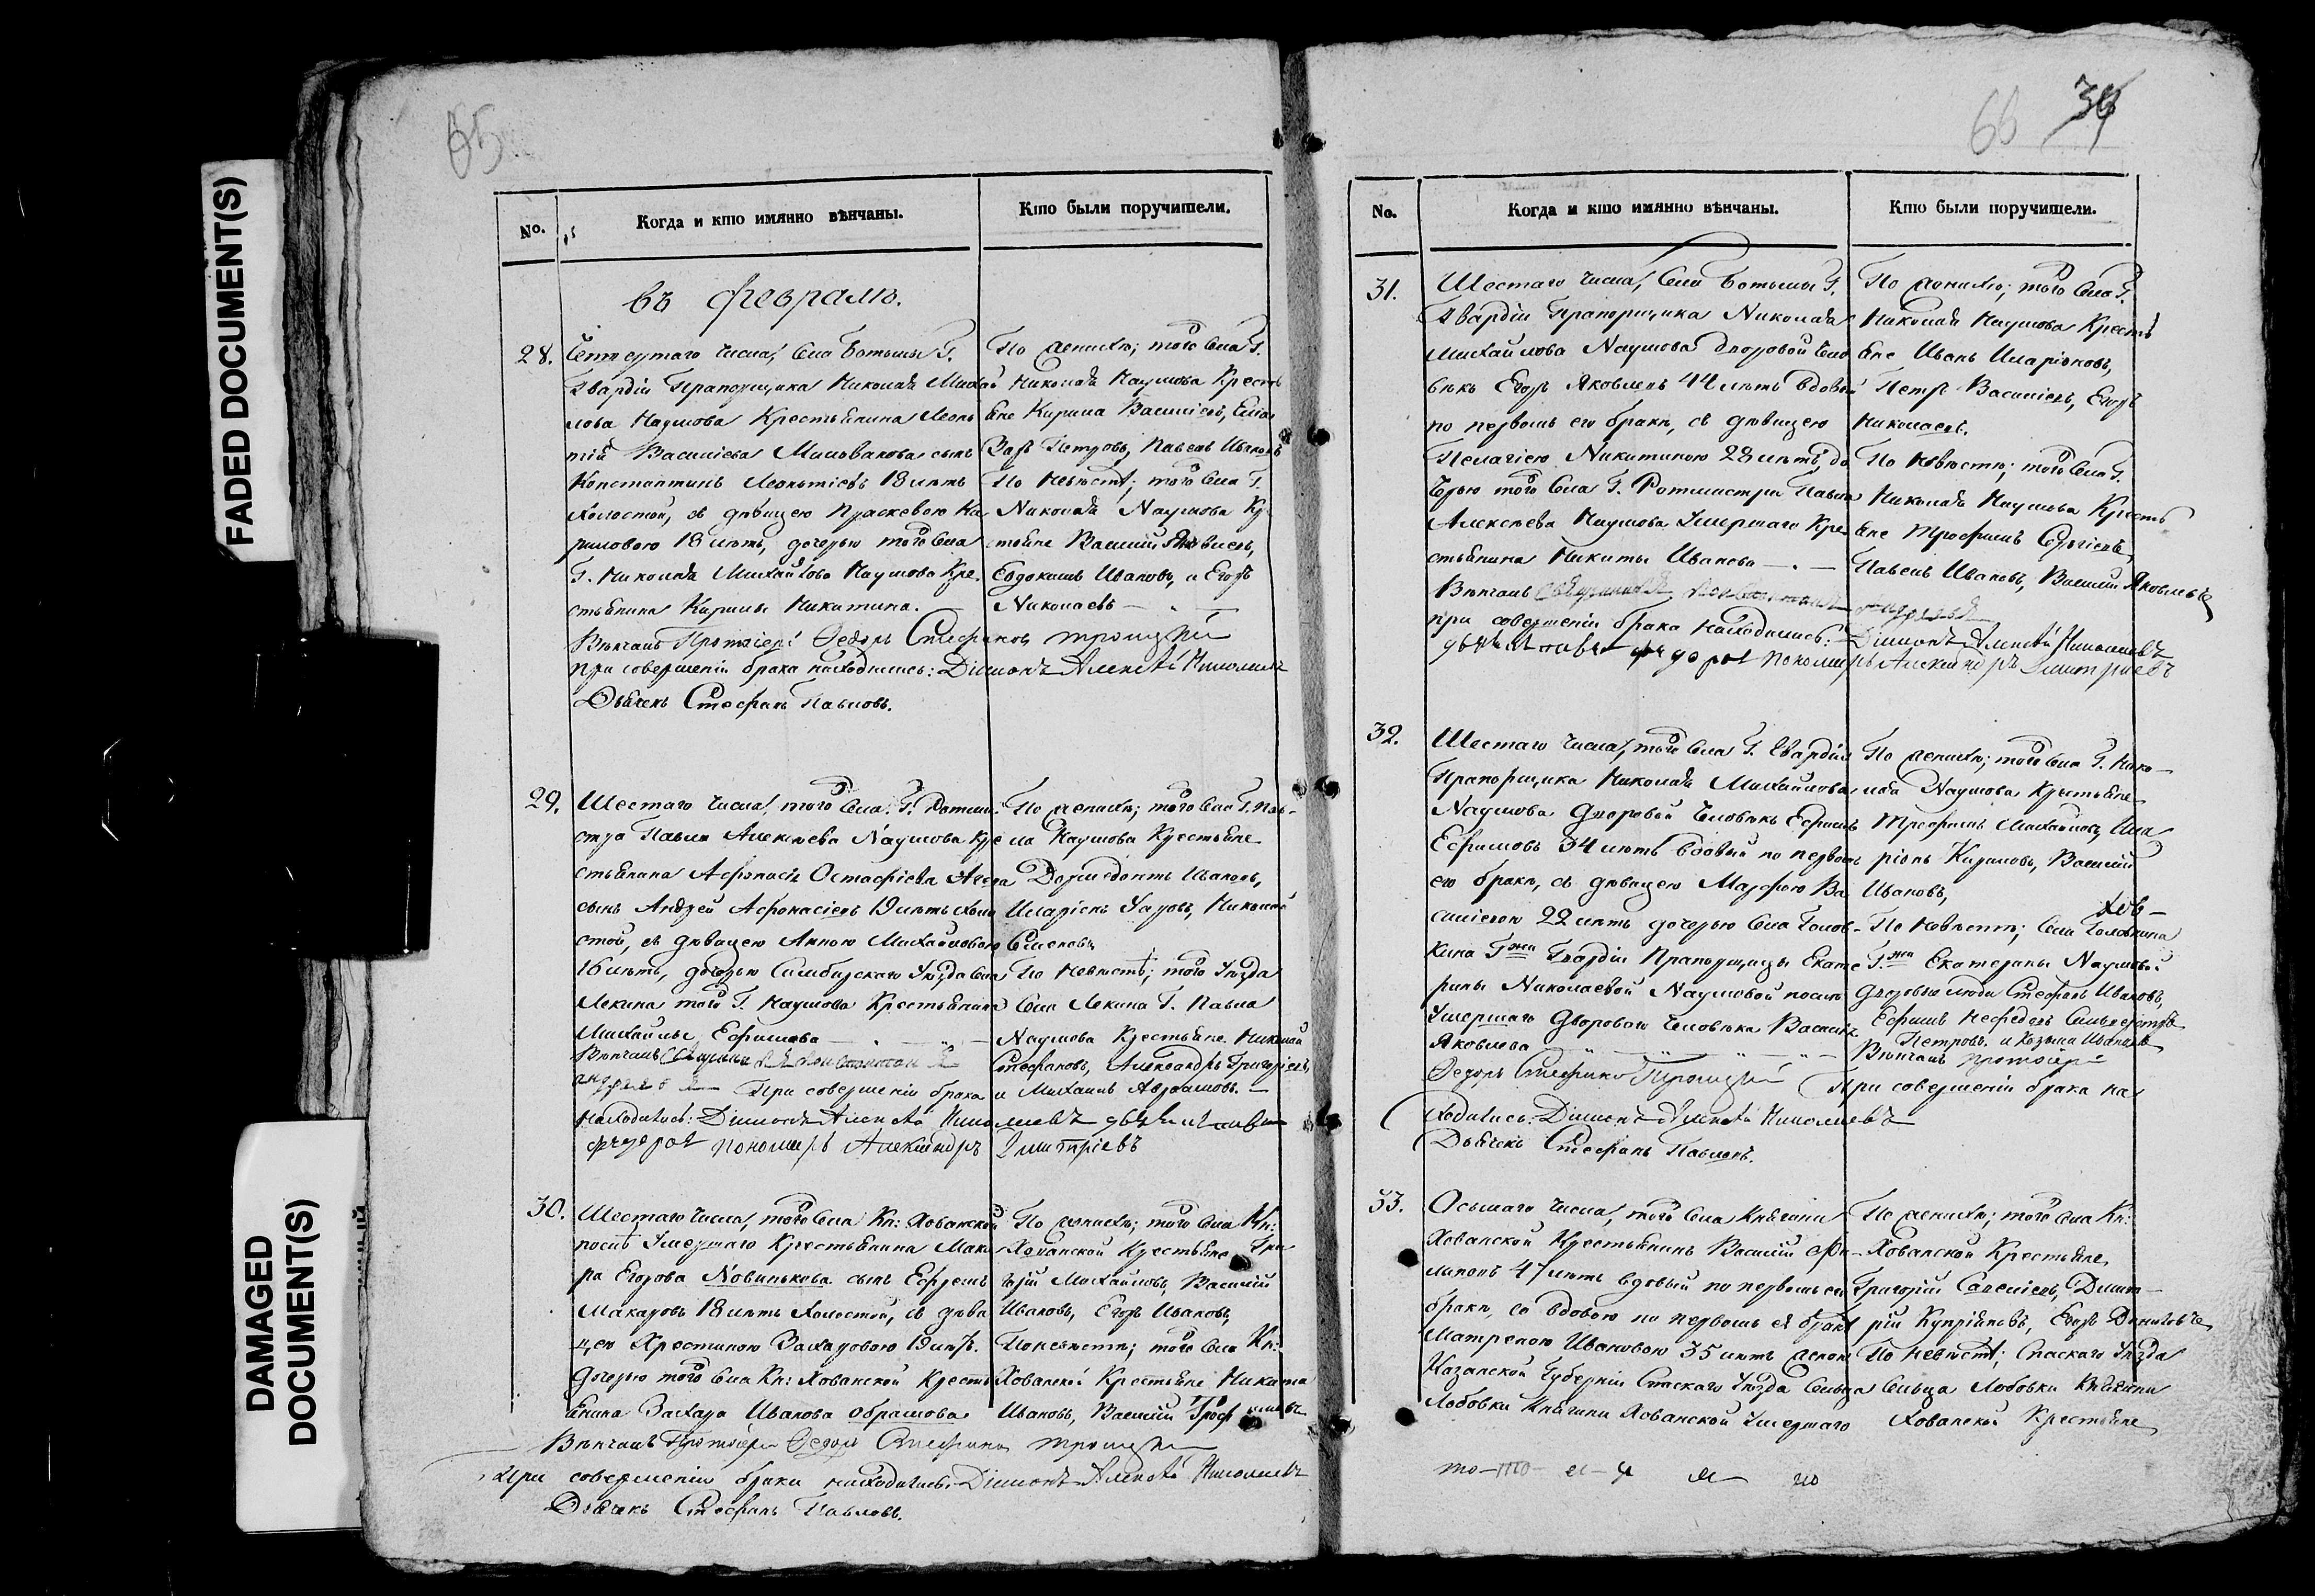 FADED DOCUMENT(S)
DAMAGED
DOCUMENT(S)
65
No.
Когда и кто имянно вѣнчаны.
Кто были поручители.
въ февралѣ.
28.
Четвертаго числа, села Ботьмы Г.
Гвардіи Прапорщика Николая Михай
лова Наумова Крестьянина Леонь
тій Васильева сынъ
Константинъ Леонтіевъ 18 лѣтъ
холостой, съ дѣвицею Праскевою Ки
риловою 18 лѣтъ, дочерью того села
Г. Николая Михайлова Наумова Кре
стьянина Кирилы Никитина.
По женихѣ; того села Г.
Николая Наумова Кресть
яне Кирила Васильевъ,
Петровъ, Павелъ
По невѣстѣ; того села Г.
Николая Наумова Кре
стьяне Василій Яковлевъ,
Евдокимъ Ивановъ, и Егоръ
Николаевъ
Вѣнчалъ Протоіерей Ѳедоръ Стефановъ Троицкій
при совершеніи брака находились: Діаконъ Алексѣй Николаевъ
Дьячекъ Стефанъ Павловъ.
29.
Шестаго числа, того села Г. Ротми
стра Павла Алексѣева Наумова Кре
стьянина Афонасія Остафіева
сынъ Андрей Афонасіевъ 19 лѣтъ холо
стой, съ дѣвицею Анною Михайловою
16 лѣтъ, дочерью Симбирскаго Уѣзда села
Лекина того Г. Наумова Крестьянина
Михайлы Ефимова
По женихѣ; того села Г. Пав-
ла Наумова Крестьяне
Дормедонтъ Ивановъ,
Иларіонъ Николай
Семеновъ
По невѣстѣ; того Уѣзда
села Лекина Г. Павла
Наумова Крестьяне Николай
Стефановъ, Александръ Григорьевъ,
и Михаилъ Авраамовъ.
Вѣнчалъ Священникъ Константинъ
Андреевъ При совершеніи брака
находились: Діаконъ Алексѣй Николаевъ дьячекъ
пономарь Александръ Димитріевъ
30.
Шестаго числа, того села Кн: Хованской
послѣ умершаго Крестьянина Мака
ра Егорова Новинькова сынъ Ефремъ
Макаровъ 18 лѣтъ холостой, съ дѣви
цею Хрестиною Захаровою 19 лѣтъ.
дочерью того села Кн: Хованской Кресть
янина Захара Иванова Обрамова
По женихѣ; того села Кн:
Хованской Крестьяне Гри
горій Михайловъ, Василій
Ивановъ, Егоръ Ивановъ,
По невѣстѣ; того села Кн:
Хованской Крестьяне Никита
Ивановъ, Василій
Вѣнчалъ Протоіерей Ѳедоръ Стефановъ Троицкій
при совершеніи брака находились: Діаконъ Алексѣй Николаевъ
Дьячекъ Стефанъ Павловъ.
66
34
No.
Когда и кто имянно вѣнчаны.
Кто были поручители.
31.
Шестаго числа, села Ботьмы Г.
Гвардіи Прапорщика Николая
Михайлова Наумова дворовой чело
вѣкъ Егоръ Яковлевъ 44 лѣтъ вдовый
по первомъ его бракѣ, съ дѣвицею
Пелагіею Никитиною 28 лѣтъ, до
черью того села Г. Ротмистра Павла
Алексѣева Наумова умершаго Кре
стьянина Никиты Иванова
По женихѣ; того села Г.
Николая Наумова Кресть
яне Иванъ Иларіоновъ,
Петръ Васильевъ, Егоръ
Николаевъ.
По невѣстѣ; того села Г.
Николая Наумова Кресть
яне Трофимъ Сергіевъ,
Павелъ Ивановъ, Василій Яковлевъ
Вѣнчалъ Священникъ Константинъ Андреевъ
при совершеніи брака находились: Діаконъ Алексѣй Николаевъ
пономарь Александръ Димитріевъ
32.
Шестаго числа, того села Г. Гвардіи
Прапорщика Николая Михайлова
Наумова дворовой человѣкъ Ефимъ
Ефимовъ 34 лѣтъ вдовый по первомъ
его бракѣ, съ дѣвицею Марфою Ва
силіевою 22 лѣтъ дочерью села Голов-
кина Гжи Гвардіи Прапорщицы Екате
рины Николаевой Наумовой послѣ
умершаго дворового человѣка Василія
Яковлева
По женихѣ; того села Г. Нико-
лая Наумова Крестьяне
Трофимъ Михайловъ, Ила
ріонъ Кириловъ, Василій
Ивановъ,
По невѣстѣ; села Головкина
Г.жи Екатерины Наумовой
дворовые люди Стефанъ Ивановъ,
Ефимъ Нефедовъ
Петровъ. и Козьма Ивановъ
Вѣнчалъ протоіерей
Ѳедоръ Стефановъ Троицкій При совершеніи брака на
ходились: Діаконъ Алексѣй Николаевъ
Дьячекъ Стефанъ Павловъ.
33.
Осьмаго числа, того села Княгини
Хованской Крестьянинъ Василій Фи
липовъ 47 лѣтъ вдовый по первомъ его
бракѣ, со вдовою по первомъ ея бракѣ
Матреною Ивановою 35 лѣтъ женою
Казанской Губерніи Спаскаго Уѣзда Сельца
Лобовки Княгини Хованской умершаго
По женихѣ; того села Кн:
Хованской Крестьяне
Григорій Савельевъ, Димит-
рій Купріяновъ, Егоръ Даниловъ
По невѣстѣ; Спаскаго Уѣзда
Сельца Лобовки Княгини
Хованской Крестьяне